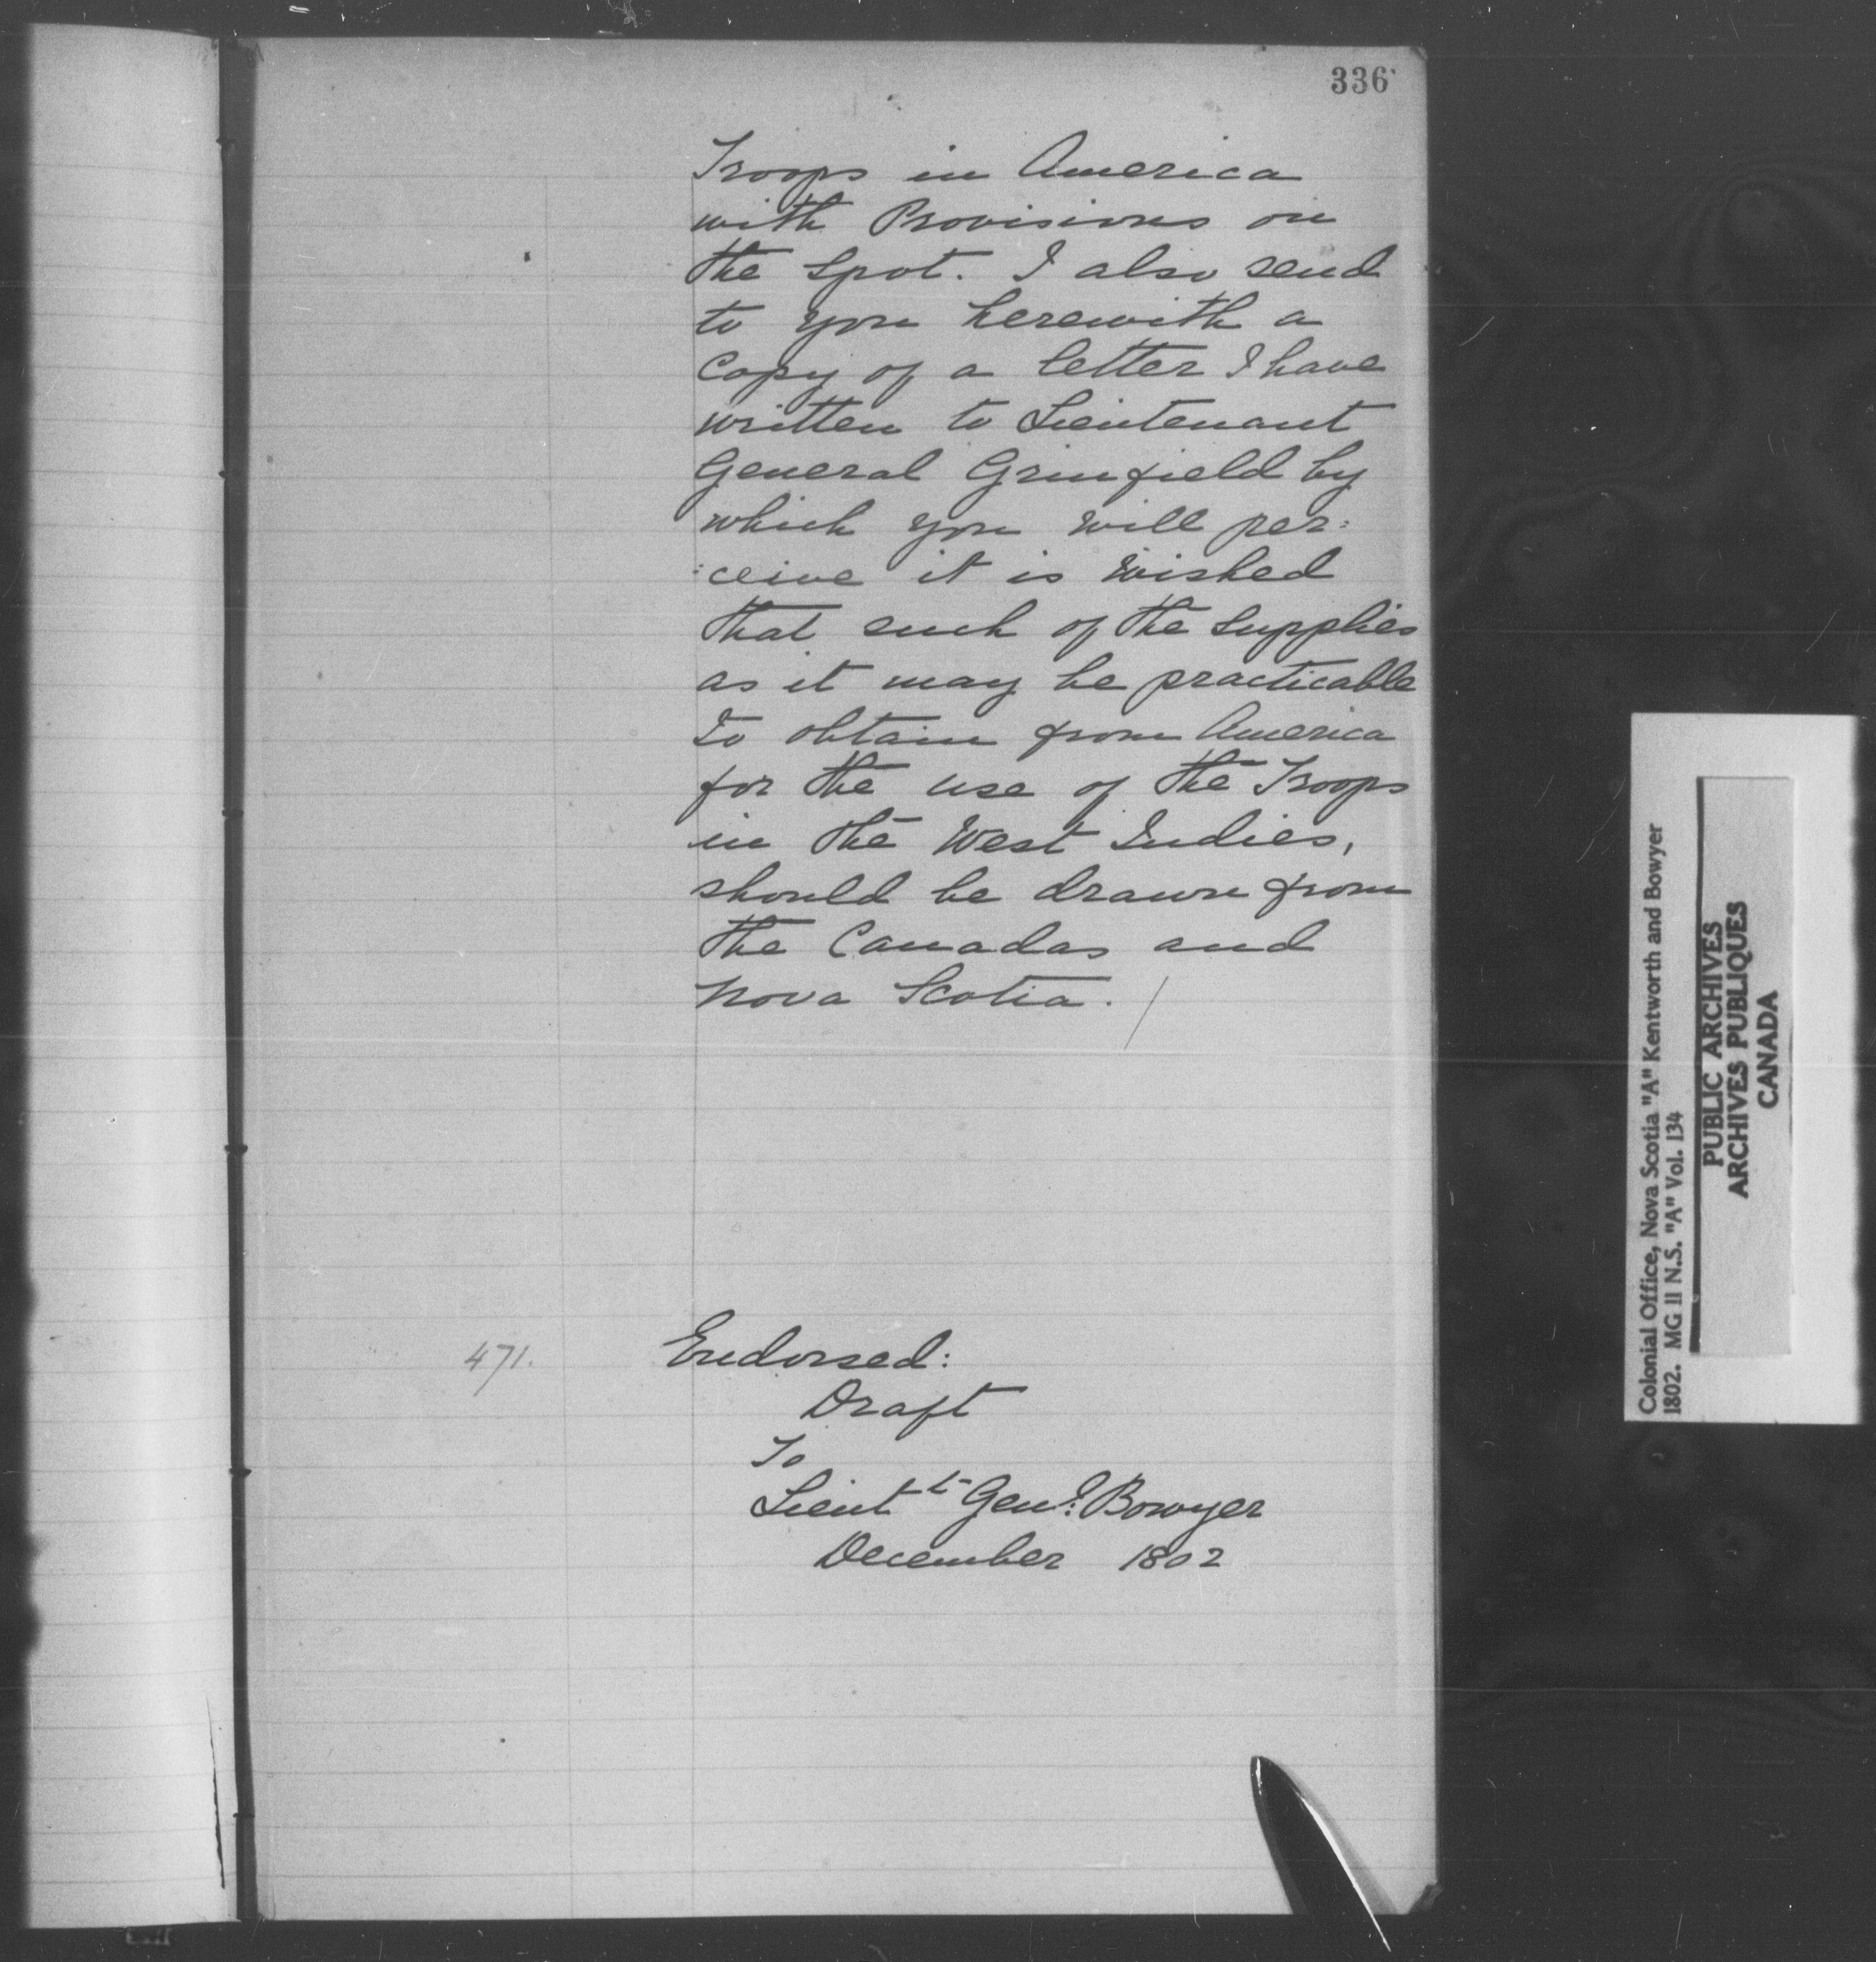 336
Troops in America
with Provisions on
the Spot. I also send
to you herewith a
Copy of a letter I have
written to Lieutenant
General Grinfield by
which you will per:
:ceive it is wished
that such of the Supplies
as it may be practicable
to obtain from America
for the use of the Troops
in the West Indies,
should be drawn from
the Canadas and
Nova Scotia. /
471.
Endorsed:
Draft
To
Lieut t Genl: Bowyer
December 1802
Colonial Office, Nova Scotia "A" Kentworth and Bowyer
1802. MG 11 N.S. "A" Vol. 134
PUBLIC ARCHIVES
ARCHIVES PUBLIQUES
CANADA